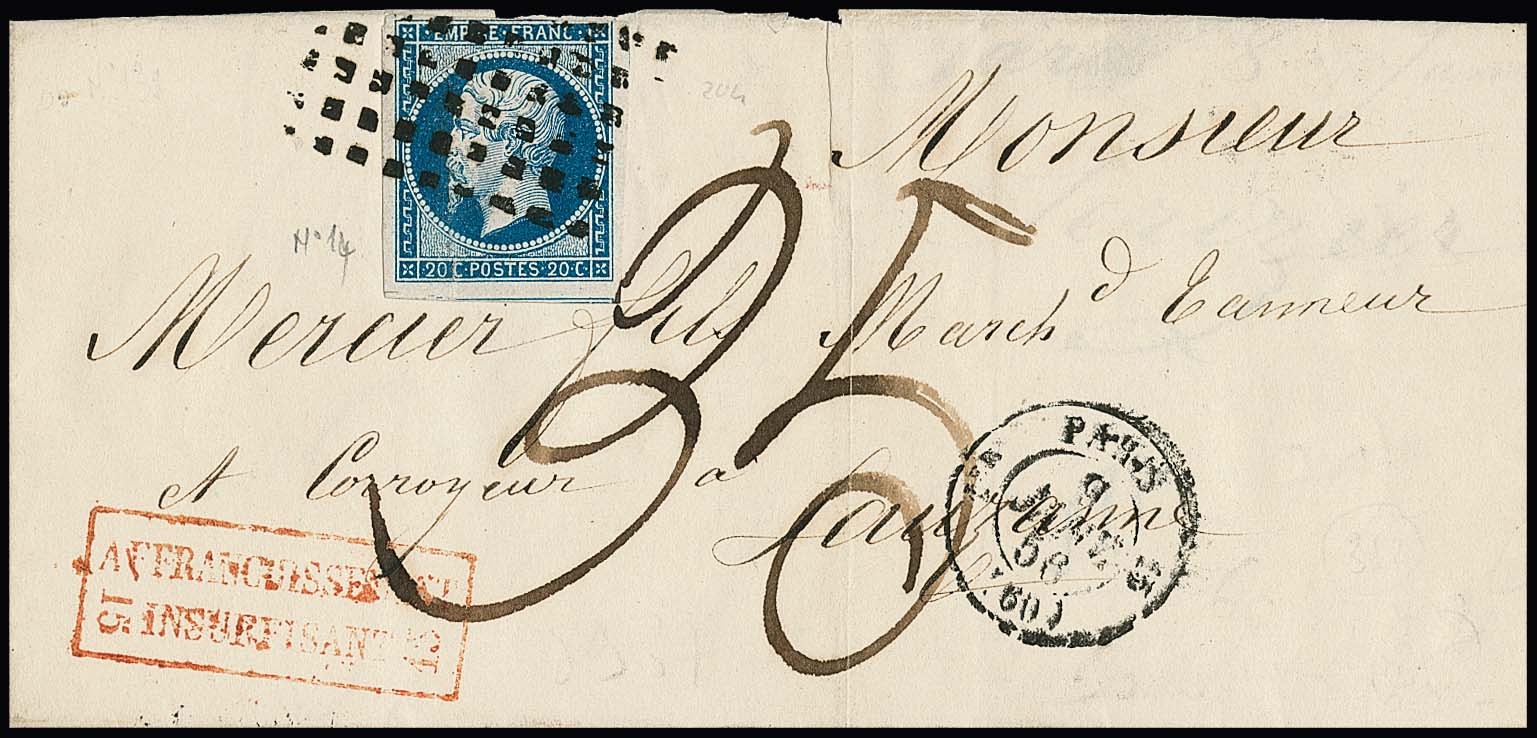 EMPIRE FRANC
20 C · POSTES · 20 C
20c
N° 14
Monsieur
Mercier fils March d Tanneur
et Corroyeur à
Lausanne
35
PARIS
9
JANV.
56
(60)
AFFRANCHISSEMENT
INSUFFISANT
15